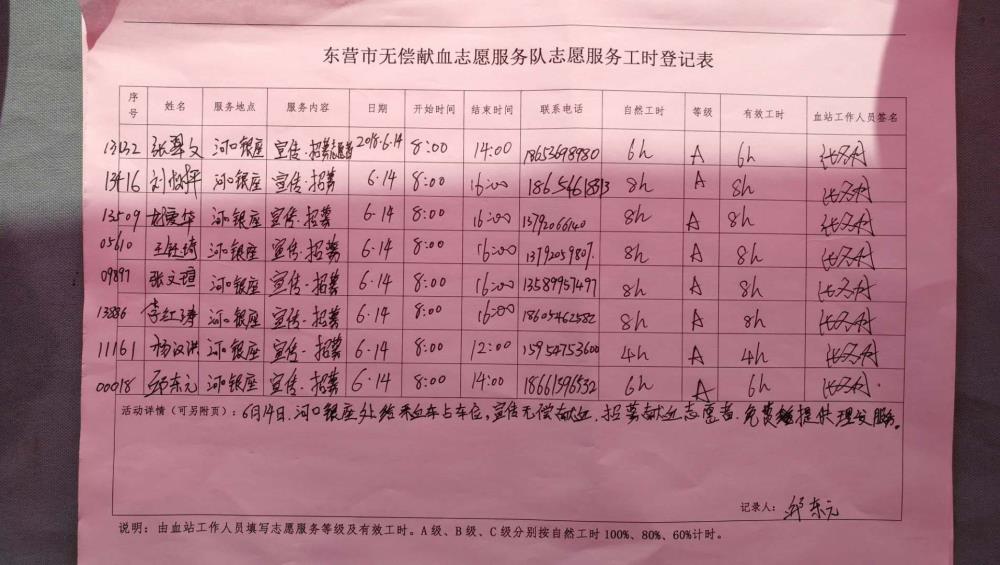 东营市无偿献血志愿服务队志愿服务工时登记表
序号 姓名 服务地点 服务内容 日期 开始时间 结束时间 联系电话 自然工时 等级 有效工时 血站工作人员签名
13132 张翠文 河口银座 宣传·招募志愿者 2018·6·14 8:00 14:00 18653698980 6h A 6h
13416 刘 河口银座 宣传·招募 6·14 8:00 16:00 8h A 8h
13509 河口银座 宣传·招募 6·14 8:00 16:00 13792066140 8h A 8h
05610 王钰琦 河口银座 宣传·招募 6·14 8:00 16:00 8h A 8h
09897 张文瑄 河口银座 宣传·招募 6·14 8:00 16:00 13589957497 8h A 8h
13886 李红涛 河口银座 宣传·招募 6·14 8:00 16:00 18605462582 8h A 8h
11161 杨汉洪 河口银座 宣传·招募 6·14 8:00 12:00 15954753600 4h A 4h
00018 邱东元 河口银座 宣传·招募 6·14 8:00 14:00 18661596532 6h A 6h
活动详情（可另附页）：6月14日，河口银座处给采血车占车位，宣传无偿献血，招募献血志愿者，免费提供理发服务。
记录人：邱东元
说明：由血站工作人员填写志愿服务等级及有效工时。A级、B级、C级分别按自然工时100%、80%、60%计时。